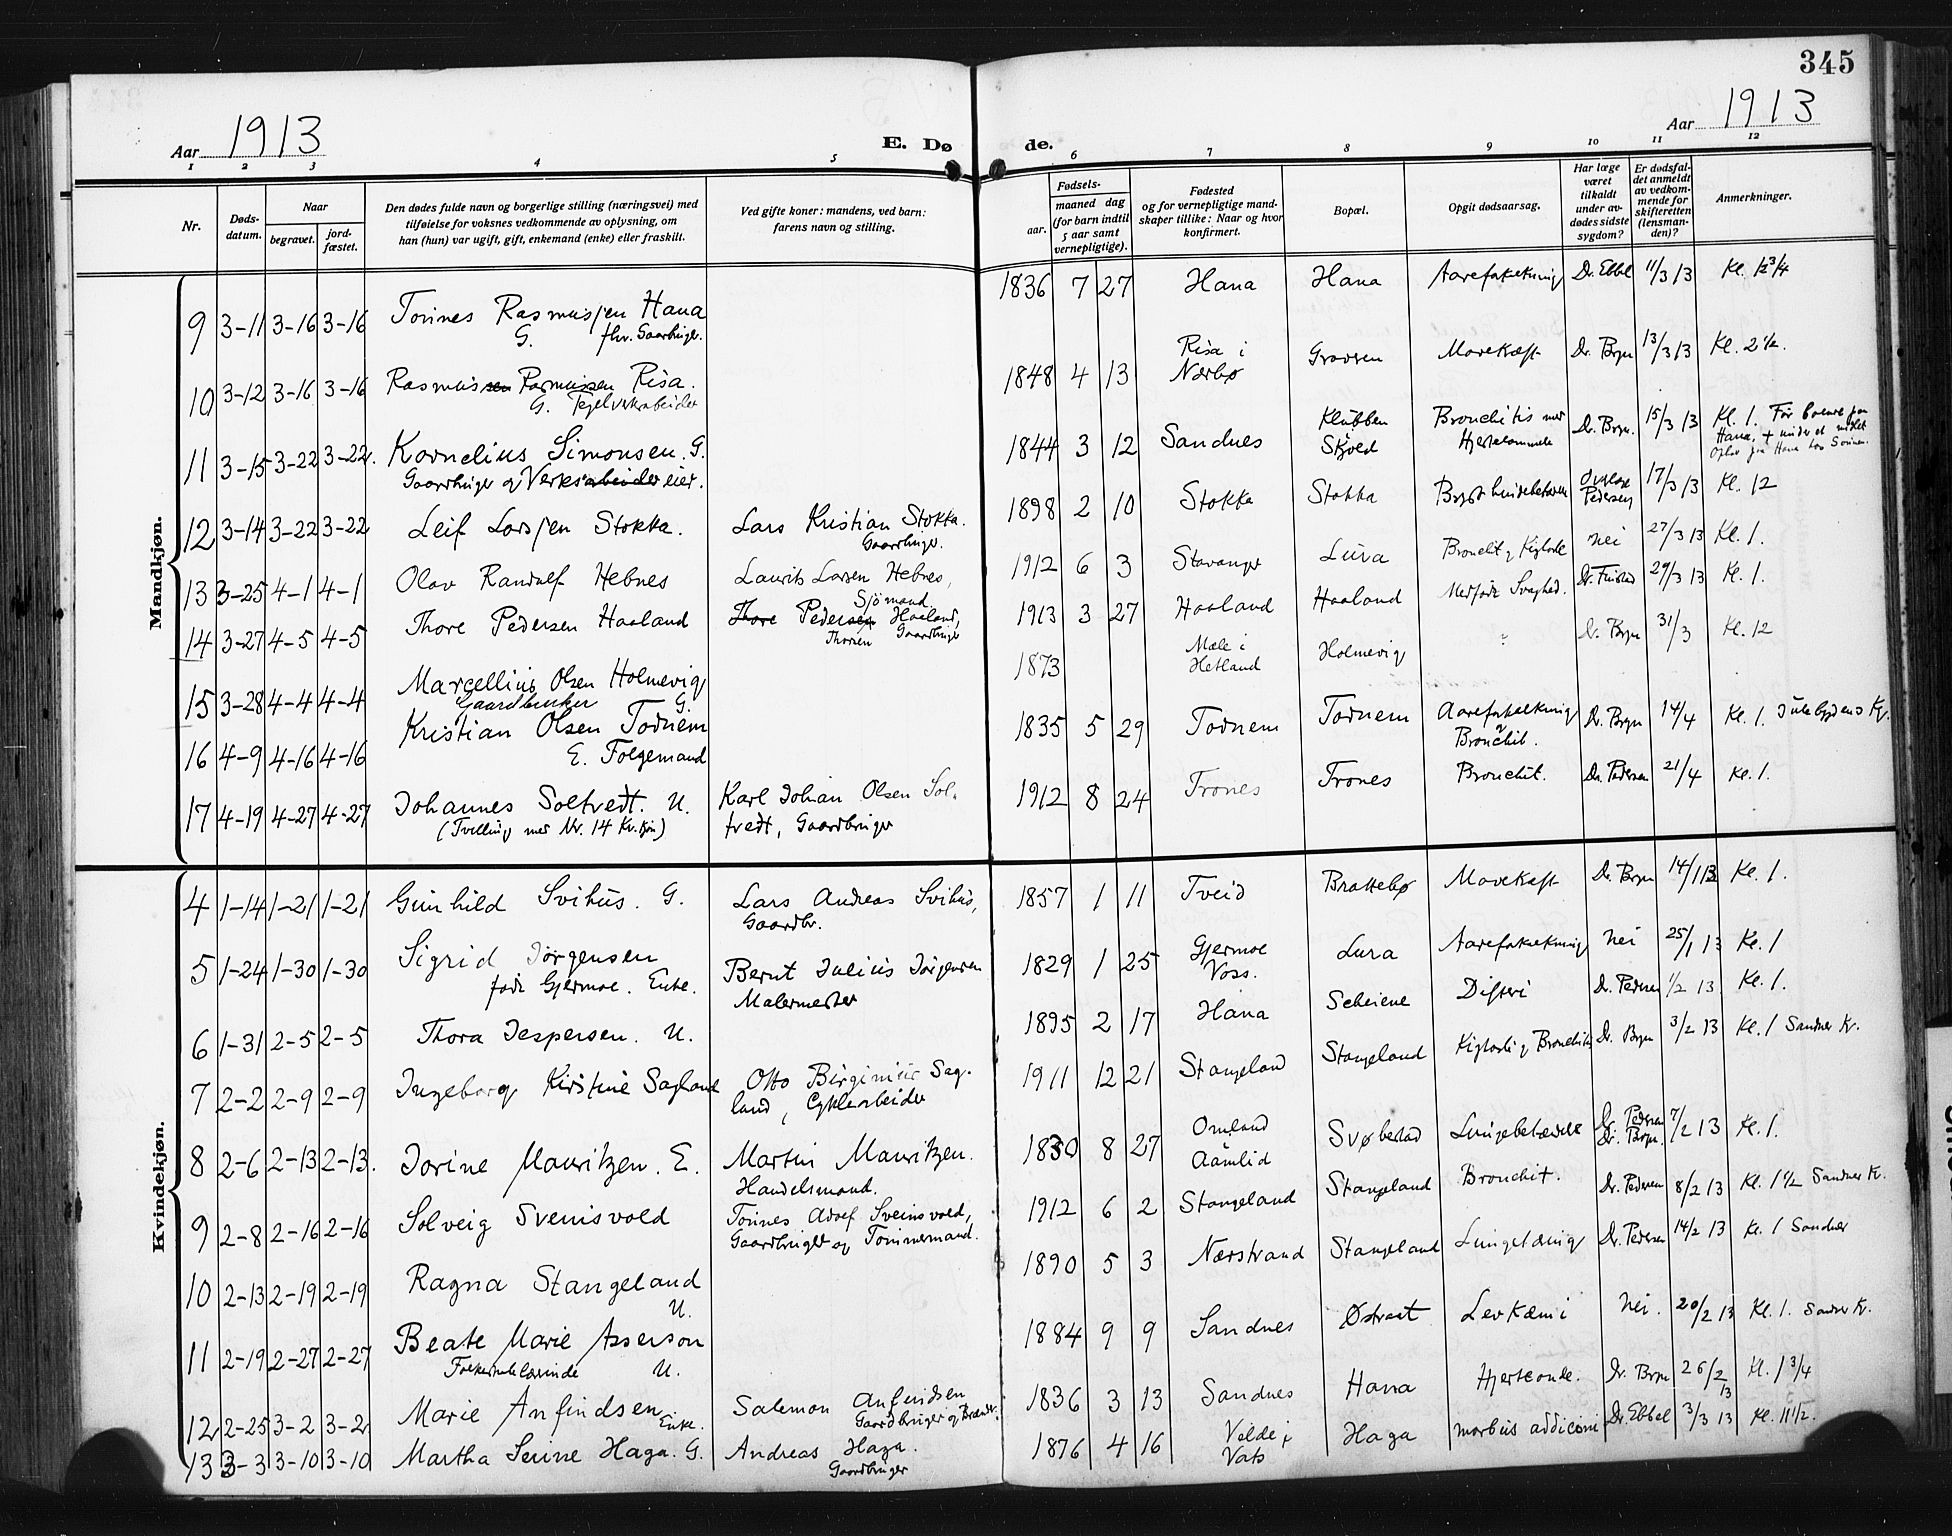 345
Aar 1913
E. Dø
de.
Aar 1913
1 2 3 4 5 6 7 8 9 10 11 12
Nr.
Døds-
datum.
Naar
begravet.
jord-
fæstet.
Den dødes fulde navn og borgerlige stilling (næringsvei) med
tilføielse for voksnes vedkommende av oplysning, om
han (hun) var ugift, gift, enkemand (enke) eller fraskilt.
Ved gifte koner: mandens, ved barn:
farens navn og stilling.
Fødsels-
aar.
maaned dag
(for barn indtil
5 aar samt
vernepligtige).
Fødested
og for vernepligtige mand-
skaper tillike: Naar og hvor
konfirmert.
Bopæl.
Opgit dødsaarsag.
Har læge
været
tilkaldt
under av-
dødes sidste
sygdom?
Er dødsfal-
det anmeldt
av vedkom-
mende for
skifteretten
(lensman-
den)?
Anmerkninger.
Mandkjøn.
9 3-11 3-16 3-16 Tønnes Rasmussen Hana G. fhv. Gaardbruger. 1836 7 27 Hana Hana Aareforkalkning Dr. Ebbel 11/3 13 Kl. 12 3/4
10 3-12 3-16 3-16 Rasmus Rasmussen Risa. G. Teglverksarbeider 1848 4 13 Risa i Nærbø Gravren Mavekræft Dr. Bryn 13/3 13 Kl. 2 1/2.
11 3-15 3-22 3-22. Kornelius Simonsen. G. Gaardbruger og Verkseier. 1844 3 12 Sandnes Klubben Skjoed Bronchitis med Hjertelammelse Dr. Bryn. 15/3 13 Kl. 1. Før boende paa Hana, + under et midlet. Ophv. paa Hana hos Sønnen.
12 3-14 3-22 3-22 Leif Larsen Stokka. Lars Kristian Stokka. Gaardbruger. 1898 2 10 Stokka Stokka Brysthindebetændelse Pedersen 17/3 13 Kl. 12
13 3-25 4-1 4-1 Olav Randulf Hebnes Laurits Larsen Hebnes, Sjömand 1912 6 3 Stavanger Lura Bronchit og Kighoste nei 27/3 13 Kl. 1.
14 3-27 4-5 4-5 Thore Pedersen Haaland Thore Pedersen Haaland, Thorsen Gaardbruger 1913 3 27 Haaland Haaland Medfødt Svaghed. 29/3 13 Kl. 1.
15 3-28 4-4 4-4 Marcellius Olsen Holmevig Gaardbruker G. 1873 Mæle i Hetland Holmevig ? Dr. Bryn 31/3 Kl. 12
16 4-9 4-16 4-16 Kristian Olsen Todnem E. Folgemand 1835 5 29 Todnem Todnem Aareforkalkning & Bronchit. Dr. Bryn 14/4 Kl. 1. Julebygdens K.
17 4-19 4-27 4-27 Johannes Soltvedt. U. (Tvilling med Nr. 14 Kv.kjøn) Karl Johan Olsen Soltvedt, Gaardbruger 1912 8 24 Trones Trones Bronchit. Dr. Pedersen 21/4 Kl. 1.
Kvindekjøn.
4 1-14 1-21 1-21 Gunhild Svihus. G. Lars Andreas Svihus, Gaardbr. 1857 1 11 Tveid Brattebø Mavekræft Dr. Bryn 14/1 13 Kl. 1.
5 1-24 1-30 1-30 Sigrid Jørgensen født Gjermoe. Enke. Bernt Julius Jørgensen Malermester 1829 1 25 Gjermoe Voss. Lura Aareforkalkning nei 25/1 13 Kl. 1
6 1-31 2-5 2-5 Thora Jespersen. U. 1895 2 17 Hana Scheiene Difteri Dr. Pedersen 1/2 13 Kl. 1.
7 2-2 2-9 2-9 Ingeborg Kirstine Sagland Otto Birginius Sagland, Cyklearbeider 1911 12 21 Stangeland Stangeland Kighoste og Bronchitis Dr. Bryn 3/2 13 Kl. 1 Sandnes K.
8 2-6 2-13 2-13. Jorine Mauritzen. E. Martin Mauritzen. Handelsmand. 1830 8 27 Omland Aamlid Svøbestad Lungebetændelse Dr. Pedersen Dr. Bryn. 7/2 13 Kl. 1.
9 2-8 2-16 2-16 Solveig Sveinsvold Tønnes Adolf Sveinsvold, Gaardbruger og Tømmermand. 1912 6 2 Stangeland Stangeland Bronchit. Dr. Pedersen 8/2 13 Kl. 1 1/2 Sandnes K.
10 2-13 2-19 2-19 Ragna Stangeland U. 1890 5 3 Nærstrand Stangeland Lungetæring Dr. Pedersen 14/2 13 Kl. 1 Sandnes
11 2-19 2-27 2-27 Beate Marie Asserson Folkeskolelærerinde U. 1884 9 9 Sandnes Østraat Levkæmi Nei. 20/2 13 Kl. 1. Sandnes K.
12 2-25 3-2 3-2 Marie Anfindsen Enke. Salemon Anfindsen Gaardbruger og 1836 3 13 Sandnes Hana Hjerteonde. Dr. Bryn 26/2 13 Kl. 1 3/4
13 3-3 3-10 3-10 Martha Serine Haga. G. Andreas Haga. Gaardbruger 1876 4 16 Velde i Vats Haga morbus addisonii Dr. Ebbel 3/3 13 Kl. 11 1/2.